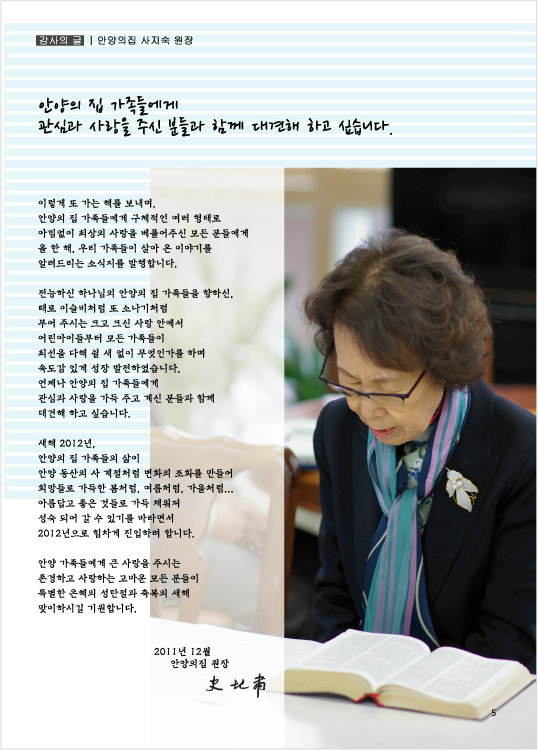 감사의 글 | 안양의집 사지숙 원장
안양의 집 가족들에게
관심과 사랑을 주신 분들과 함께 대견해 하고 싶습니다.
이렇게 또 가는 해를 보내며,
안양의 집 가족들에게 구체적인 여러 형태로
아낌없이 최상의 사랑을 베풀어주신 모든 분들에게
올 한 해, 우리 가족들이 살아 온 이야기를
알려드리는 소식지를 발행합니다.
전능하신 하나님의 안양의 집 가족들을 향하신,
때로 이슬비처럼 또 소나기처럼
부어 주시는 크고 크신 사랑 안에서
어린아이들부터 모든 가족들이
최선을 다해 쉴 새 없이 무엇인가를 하며
속도감 있게 성장 발전하였습니다.
언제나 안양의 집 가족들에게
관심과 사랑을 가득 주고 계신 분들과 함께
대견해 하고 싶습니다.
새해 2012년,
안양의 집 가족들의 삶이
안양 동산의 사 계절처럼 변화의 조화를 만들어
희망들로 가득한 봄처럼, 여름처럼, 가을처럼...
아름답고 좋은 것들로 가득 채워져
성숙 되어 갈 수 있기를 바라면서
2012년으로 힘차게 진입하려 합니다.
안양 가족들에게 큰 사랑을 주시는
존경하고 사랑하는 고마운 모든 분들이
특별한 은혜의 성탄절과 축복의 새해
맞이하시길 기원합니다.
2011년 12월
안양의집 원장
5